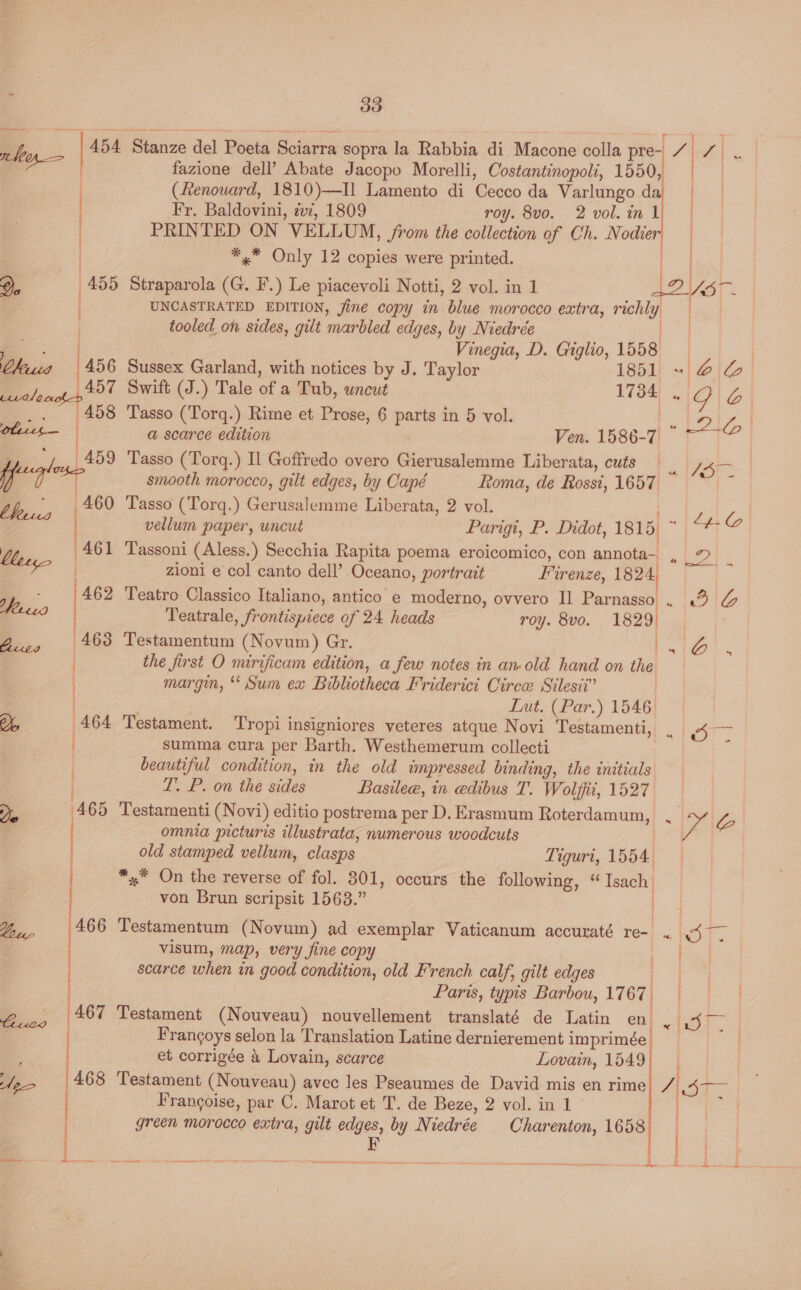 33
454 Stanze del Poeta Sciarra sopra la Rabbia di Macone colla pre- 1 1 -
fazione dell' Abate Jacopo Morelli, Costantinopoli, 1550,
(Renouard, 1810)—Il Lamento di Cecco da Varlungo da
Fr. Baldovini, ivi, 1809 roy. 8vo. 2 vol. in 1
PRINTED ON VELLUM, from the collection of Ch. Nodier
*⁎* Only 12 copies were printed.
Do 455 Straparola (G. F.) Le piacevoli Notti, 2 vol. in 1 2 15 -
UNCASTRATED EDITION, fine copy in blue morocco extra, richly
tooled on sides, gilt marbled edges, by Niedrée
Vinegia, D. Giglio, 1558
456 Sussex Garland, with notices by J. Taylor 1851 - 6 6
457 Swift (J.) Tale of a Tub, uncut 1734 - 9 6
458 Tasso (Torq.) Rime et Prose, 6 parts in 5 vol.
a scarce edition Ven. 1586-7 - 2 6
459 Tasso (Torq.) Il Goffredo overo Gierusalemme Liberata, cuts
smooth morocco, gilt edges, by Capé Roma, de Rossi, 1657 - 15 -
460 Tasso (Torq.) Gerusalemme Liberata, 2 vol.
vellum paper, uncut Parigi, P. Didot, 1815 - 4 6
461 Tassoni (Aless.) Secchia Rapita poema eroicomico, con annota-
zioni e col canto dell' Oceano, portrait Firenze, 1824 - 2 -
462 Teatro Classico Italiano, antico e moderno, ovvero Il Parnasso - 3 6
Teatrale, frontispiece of 24 heads roy. 8vo. 1829
463 Testamentum (Novum) Gr. - 6 -
the first O mirificam edition, a few notes in an old hand on the
margin, “Sum ex Bibliotheca Friderici Circæ Silesii”
Lut. (Par.) 1546
Do 464 Testament. Tropi insigniores veteres atque Novi Testamenti, - 5 -
summa cura per Barth. Westhemerum collecti
beautiful condition, in the old impressed binding, the initials
T. P. on the sides Basileæ, in ædibus T. Wolffii, 1527
Do 465 Testamenti (Novi) editio postrema per D. Erasmum Roterdamum, - 7 6
omnia picturis illustrata, numerous woodcuts
old stamped vellum, clasps Tiguri, 1554
*⁎* On the reverse of fol. 301, occurs the following, “Isach
von Brun scripsit 1563.”
466 Testamentum (Novum) ad exemplar Vaticanum accuraté re- - 5 -
visum, map, very fine copy
scarce when in good condition, old French calf, gilt edges
Paris, typis Barbou, 1767
467 Testament (Nouveau) nouvellement translaté de Latin en - 5 -
Françoys selon la Translation Latine dernierement imprimée
et corrigée à Lovain, scarce Lovain, 1549
468 Testament (Nouveau) avec les Pseaumes de David mis en rime 1 5 -
Françoise, par C. Marot et T. de Beze, 2 vol. in 1
green morocco extra, gilt edges, by Niedrée Charenton, 1658
F